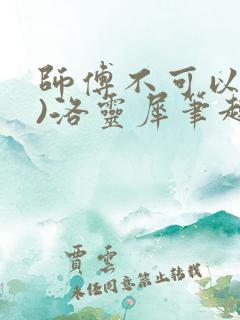 師傅不可以
)洛靈犀筆趣
賈雲
未任同意禁止转载